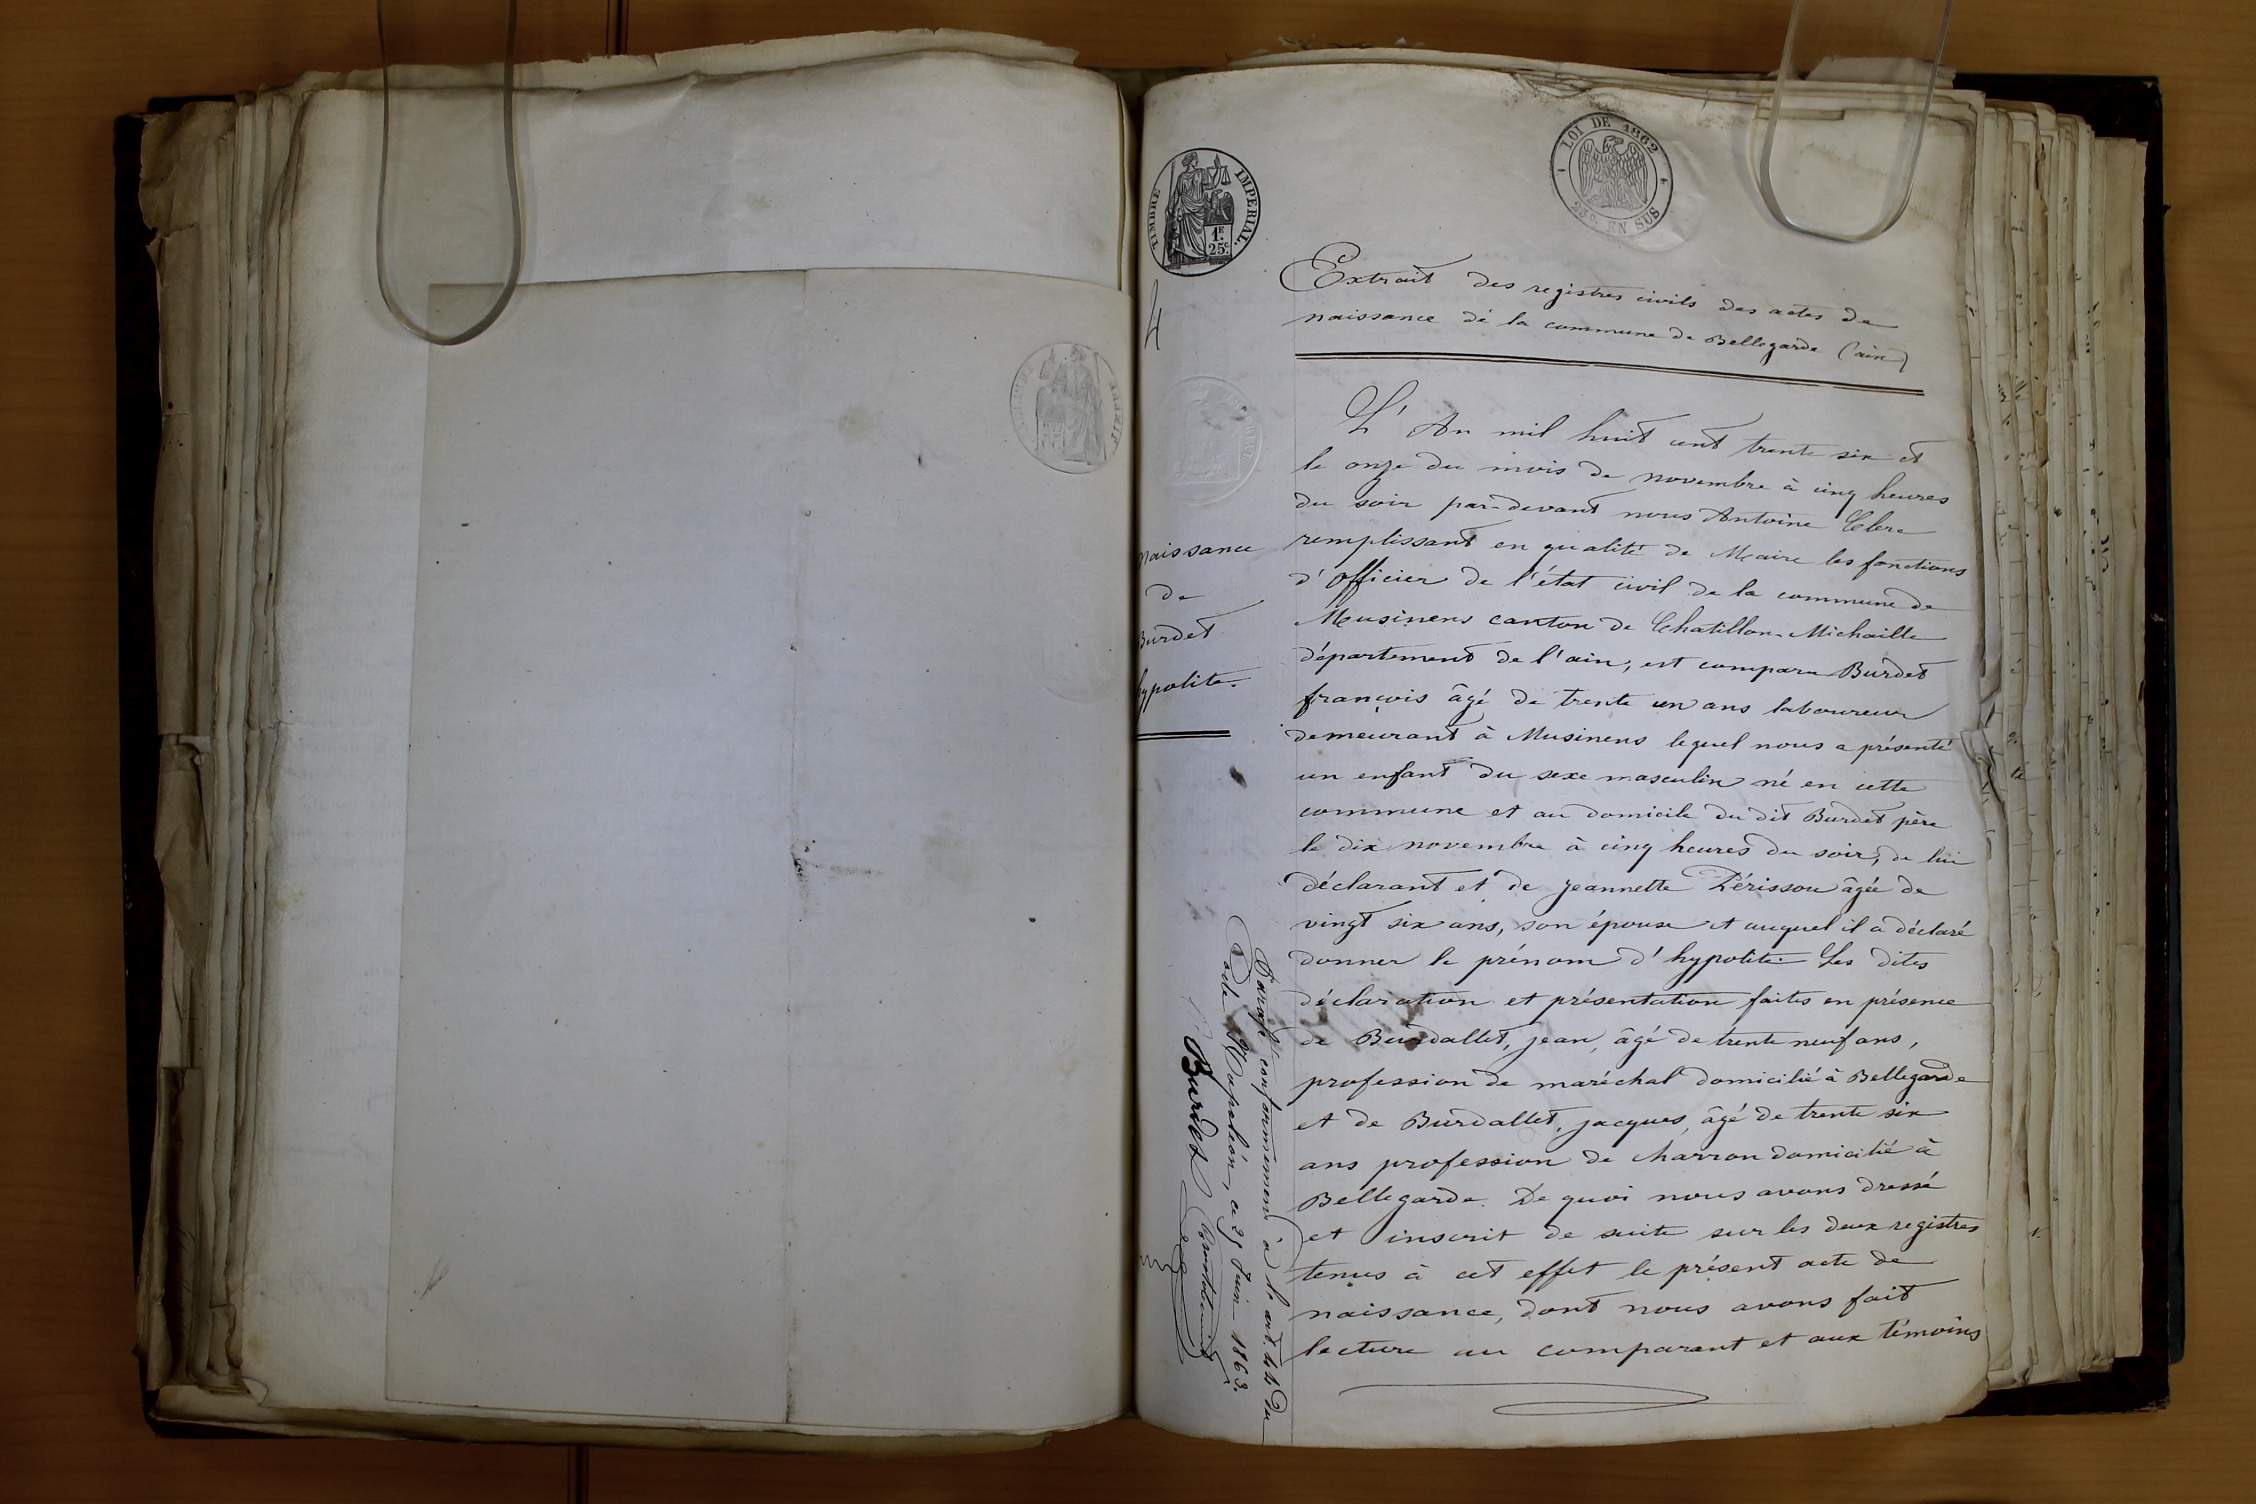 TIMBRE IMPERIAL.
1F.
25c.
LOI DE 1862
25c. EN SUS
4
Extrait des registres civils des actes de
naissance dé la commune de Bellegarde (ain)
naissance
de
Burdet
hypolite.
L'An mil huit cent trente six et
le onze du mois de novembre à cinq heures
du soir par-devant nous Antoine Clerc
remplissant en qualité de Maire les fonctions
d'officier de l'état civil de la commune de
Musinens canton de Chatillon-Michaille
département de l'ain, est comparu Burdet
françois âgé de trente un ans laboureur
demeurant à Musinens lequel nous a présenté
un enfant du sexe masculin né en cette
commune et au domicile du dit Burdet père
le dix novembre à cinq heures du soir, de lui
déclarant et de jeannette Périssou âgée de
vingt six ans, son épouse et auquel il a déclaré
donner le prénom d'hypolite. Les dites
déclaration et présentation faites en présence
de Burdallet, jean, âgé de trente neuf ans,
profession de maréchal domicilié à Bellegarde
et de Burdallet, jacques, âgé de trente six
ans profession de charron domicilié à
Bellegarde. De quoi nous avons dressé
et inscrit de suite sur les deux registres
tenus à cet effet le présent acte de
naissance, dont nous avons fait
lecture au comparant et aux témoins
Paraphé conformément à l'art. 44 du
Code Napoléon, ce 25 Juin 1863.
Burdet